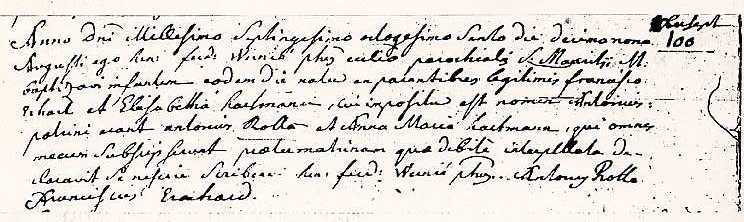 Anno Dni Millesimo Septingesimo octogesimo Sexto die decimanona
100
Augusti ego hen: ferd: phus parochialis S. Mauritii M.
baptizavi infantem eodem die natu ex parentibus legitimis francisco
erhart et Elisabetha hartmann, cui imposita est nomen Antonius:
patrini erant antonius Rolla et Anna Maria hartmann, qui omnes
mecum subscripserunt matrinam quae debite interpellata de-
claravit se nescire scribere hen: ferd: phus. Antony Rolla
Franciscus Erachard.